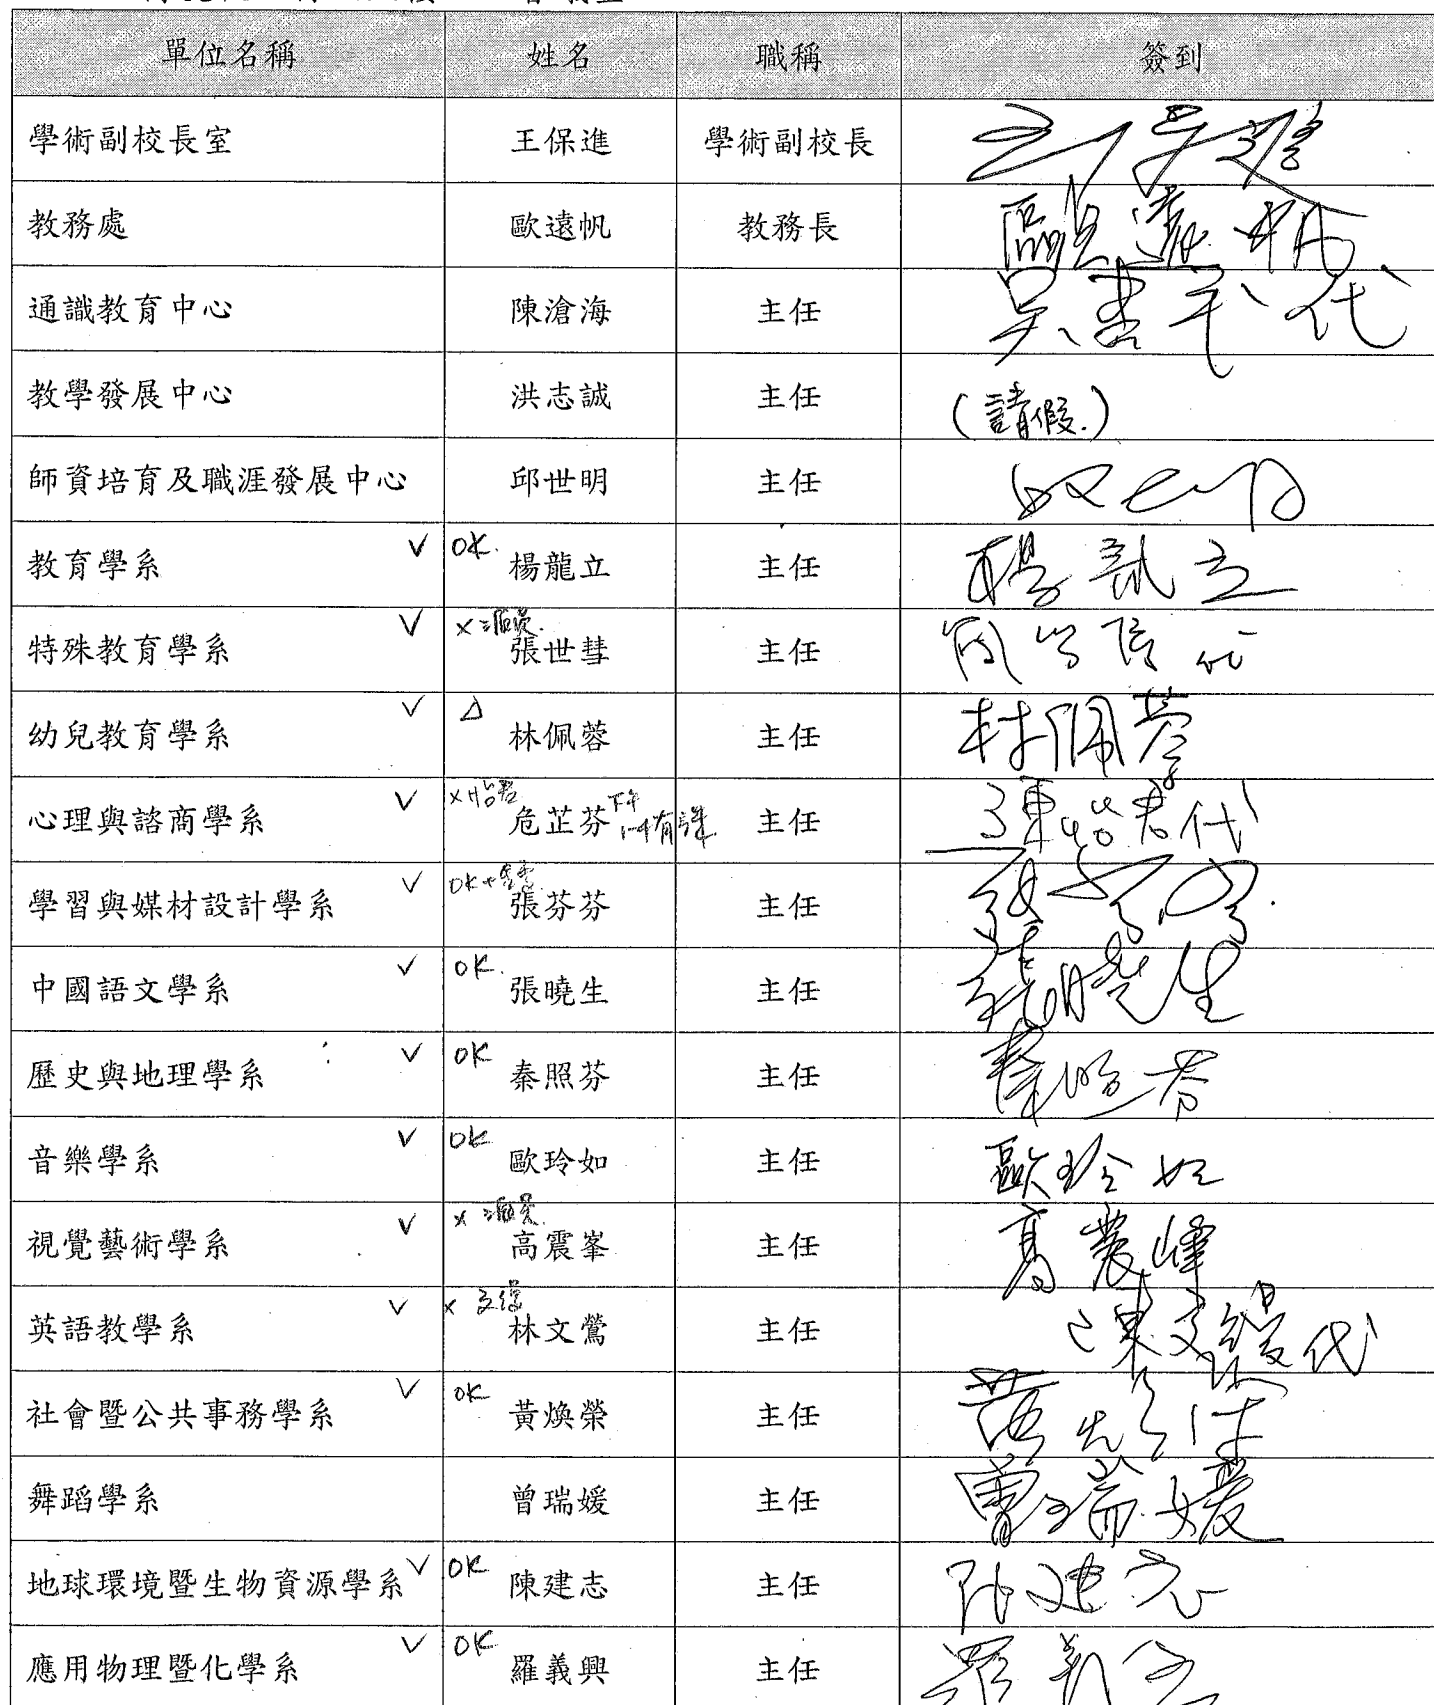 單位名稱 姓名 職稱 簽到
學術副校長室 王保進 學術副校長
教務處 歐遠帆 教務長 歐遠帆
通識教育中心 陳滄海 主任 代
教學發展中心 洪志誠 主任 (請假.)
師資培育及職涯發展中心 邱世明 主任 邱世明
教育學系 V OK. 楊龍立 主任 楊龍立
特殊教育學系 V x 張世彗 主任 代
幼兒教育學系 V △ 林佩蓉 主任 林佩蓉
心理與諮商學系 V x怡君 危芷芬 下午1-4有課 主任 陳怡君代
學習與媒材設計學系 V OK 張芬芬 主任 張芬芬
中國語文學系 V OK. 張曉生 主任 張曉生
歷史與地理學系 V OK 秦照芬 主任 秦照芬
音樂學系 V OK 歐玲如 主任 歐玲如
視覺藝術學系 V x 高震峯 主任 高震峰
英語教學系 V x 林文鶯 主任 代
社會暨公共事務學系 V OK 黃煥榮 主任 黃煥榮
舞蹈學系 曾瑞媛 主任 曾瑞媛
地球環境暨生物資源學系 V OK 陳建志 主任 陳建志
應用物理暨化學系 V OK 羅義興 主任 羅義興